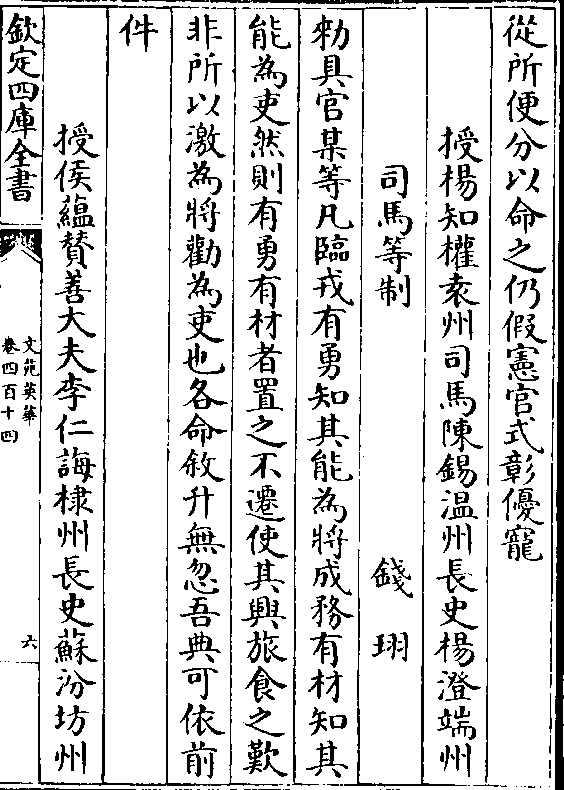 從所便分以命之仍假憲官式彰優寵
授楊知權袁州司馬陳錫温州長史楊澄端州
司馬等制 錢珝
勑具官某等凡臨戎有勇知其能為將成務有材知其
能為吏然則有勇有材者置之不遷使其興旅食之歎
非所以激為將勸為吏也各命敘升無忽吾典可依前
件
授侯藴賛善大夫李仁誨棣州長史蘇汾坊州
欽定四庫全書
文苑英華
卷四百十四
六